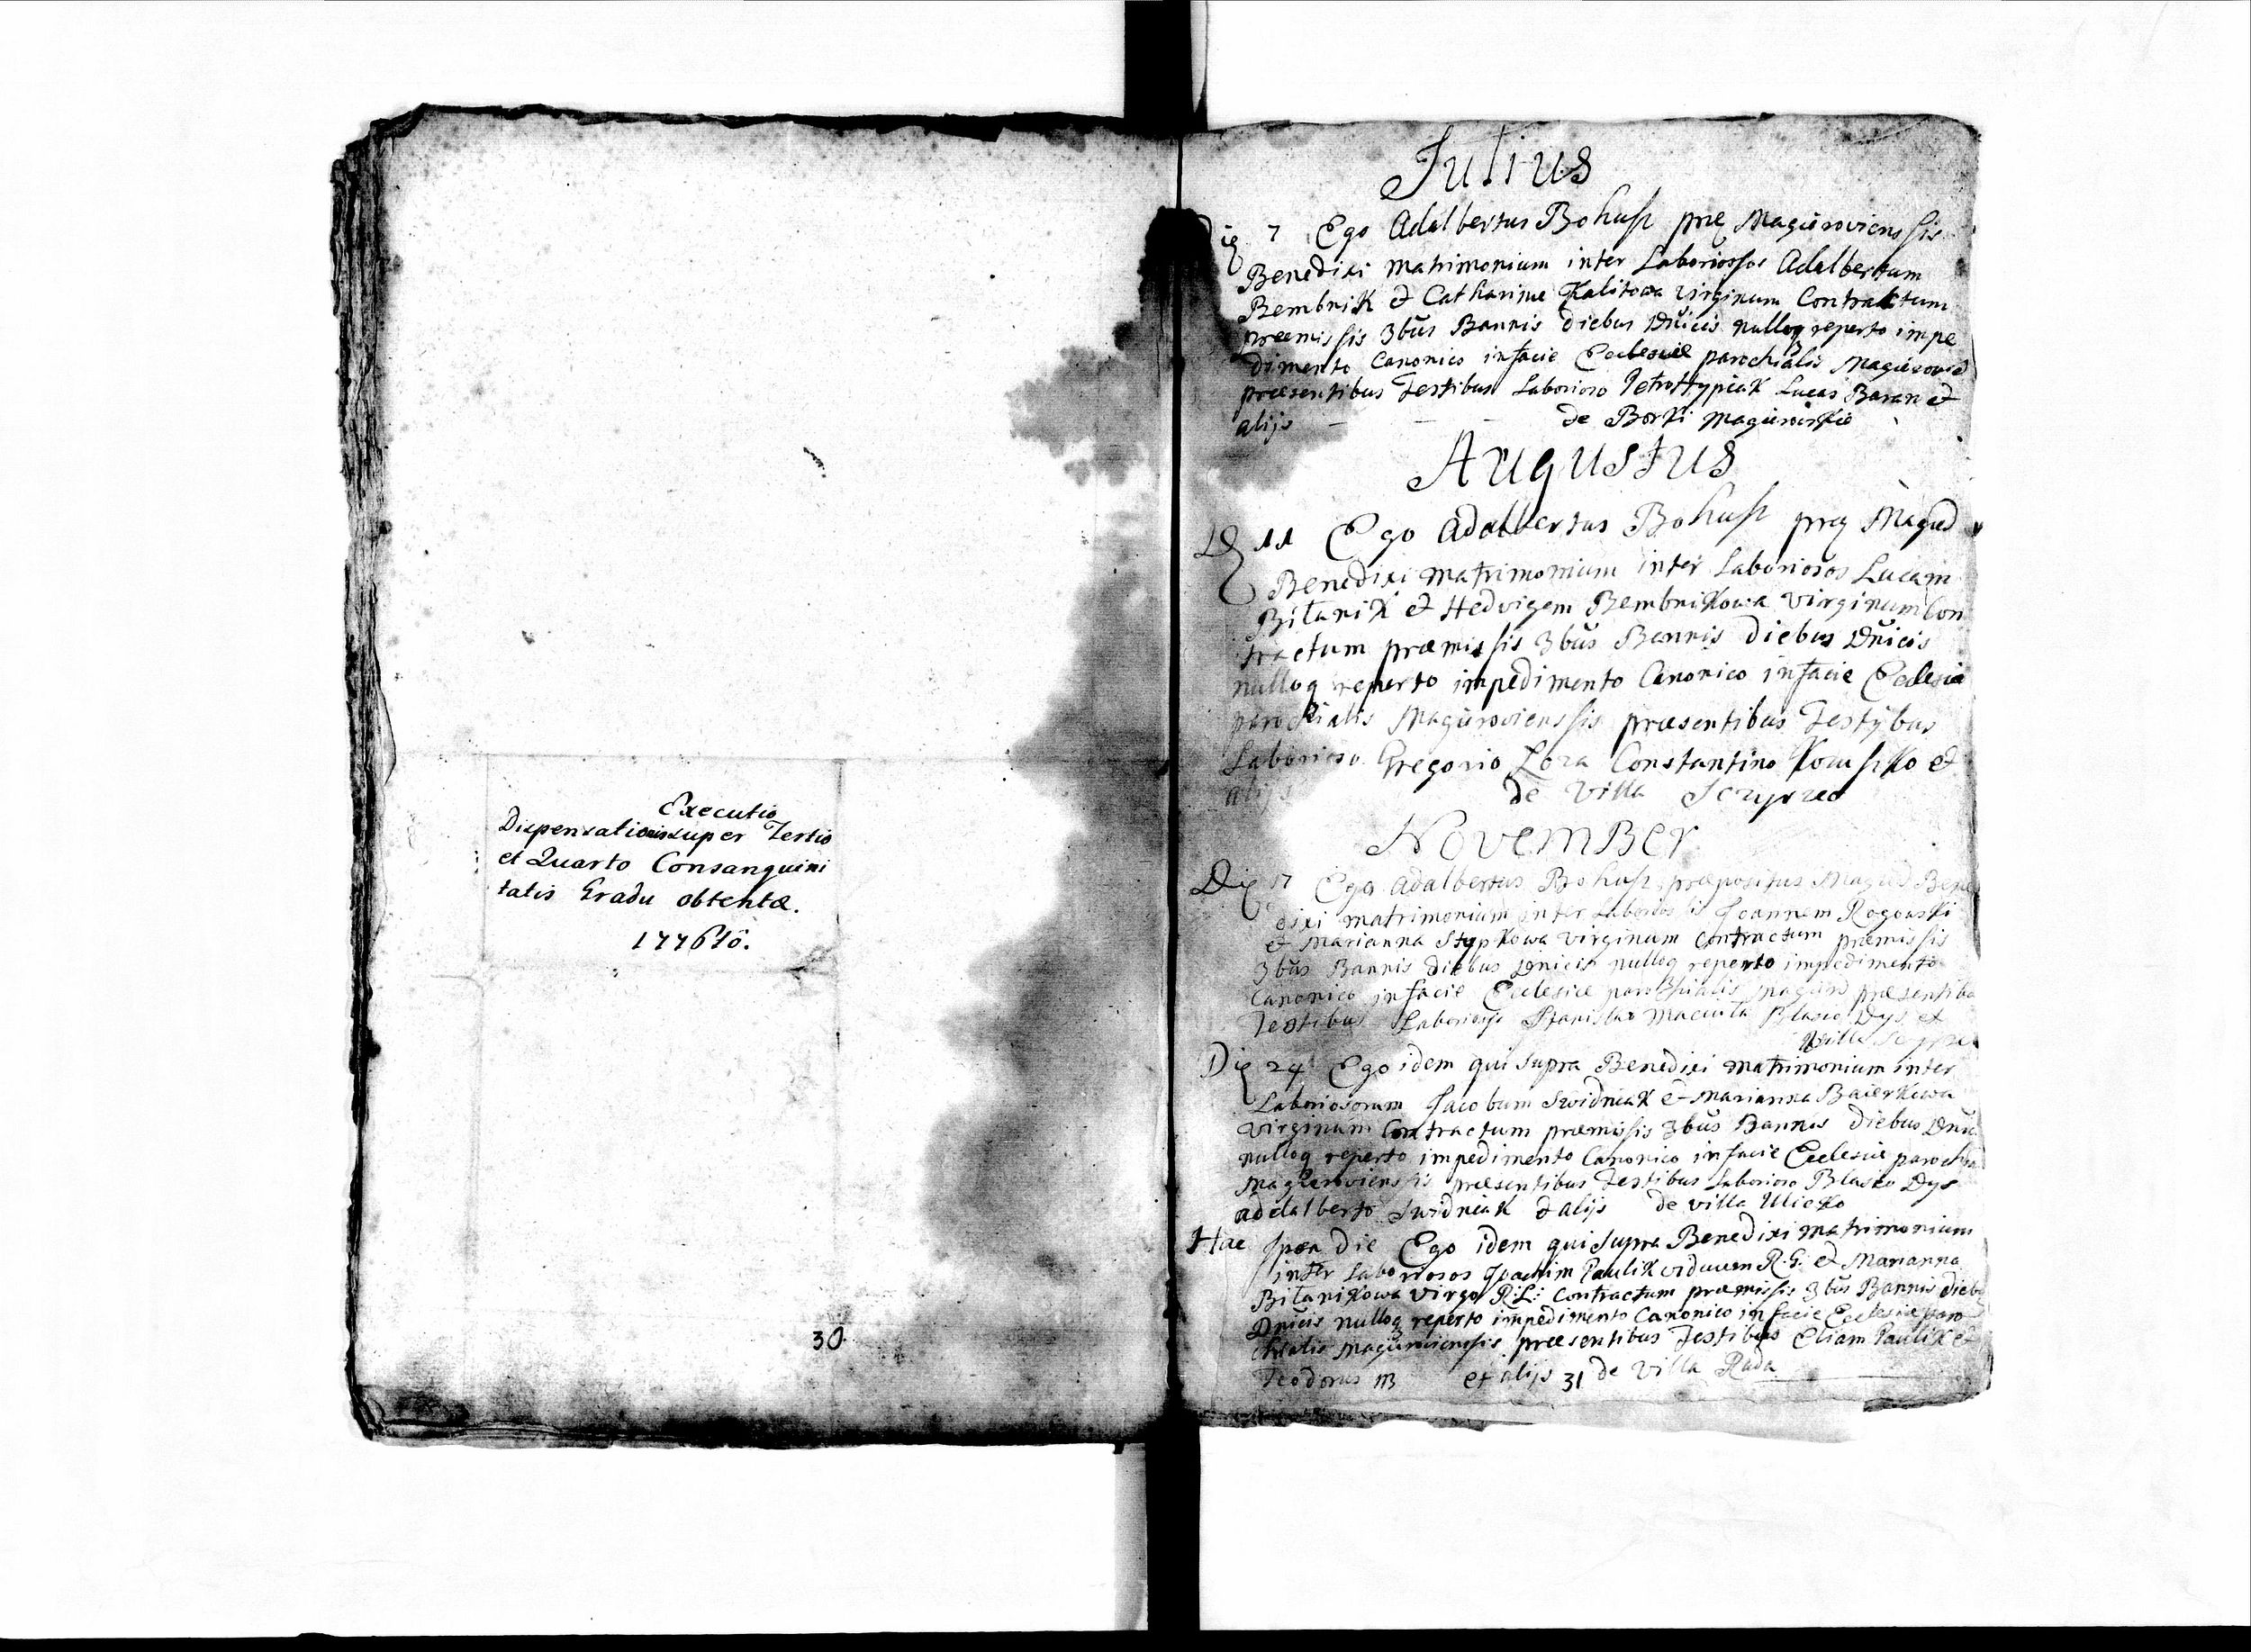 Executio
Dispensationis super Tertio
et Quarto Consanguini
tatis Gradu obtentæ.
1776tô.
30
Julius
Die 7 Ego Adalbertus Bohusz Magierovienssis
Benedixi Matrimonium inter Laboriossos Adalbertum
Bembnik et Catharine Kalitowa Virginum Contraktum
præmissis 3bûs Bannis diebus Dnicis nulloq reperto impe
dimento Canonico in facie Ecclesiæ parochialis
præsentibus Testibus Laborioso Lucas Baran et
alijs de Borki
Augustus
D 11 Ego Adalbertus Bohusz
Benedixi Matrimonium inter Laboriosos Lucam
Biłanik et Hedvigem Bembnikowa Virginum Con
tractum præmissis 3bûs Bannis diebus Dnicis
nulloq reperto impedimento Canonico in facie Ecclesia
parochialis Magierovienssis præsentibus Testybus
Laborioso Gregorio Constantino et
alijs de Villa
November
Die 17 Ego Adalbertus Bohusz præpositus Bene
dixi matrimonium inter Joannem Rogowski
et Marianna Stypkowa Virginum Contractum præmissis
3bûs Bannis diebus Dnicis nulloq reperto impedimento
Canonico in facie Ecclesiæ parochialis præsentibu
Testibus Stanislao Blasio Dys et
Die 24 Ego idem qui supra Benedixi Matrimonium inter
Laboriosorum Jacobum Swidniak et Marianna Baierkowa
Virginum Contractum præmissis 3bûs Bannis diebus
nulloq reperto impedimento Canonico in facie Ecclesiæ
Magierovienssis præsentibus Testibus Laborioso Dys
adalberto Swidniak et alijs de villa Ulicko
Hac die Ego idem qui supra Benedixi Matrimonium
inter Laboriosos Joachim Paulik R.G. et Marianna
Biłanikowa Virgo R.L: Contractum præmissis 3bûs Bannis
Dnicis nulloq reperto impedimento Canonico in facie Ecclesiæ paro
chialis Magierovienssis præsentibus Testibus Eliam Paulik et
Teodorus et alijs 31 de Villa Ruda